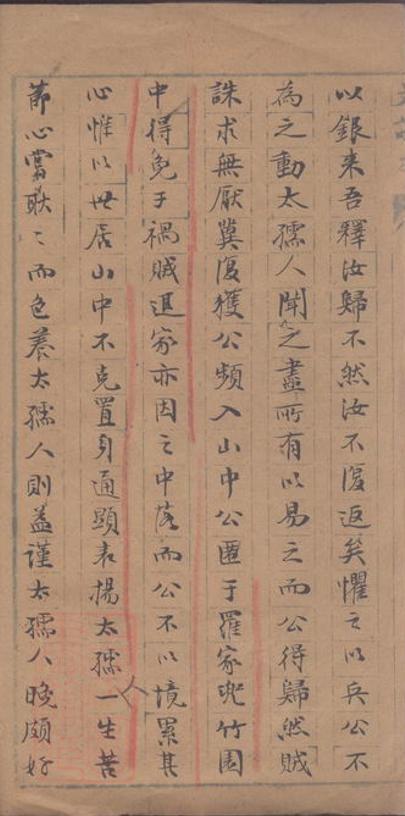 以銀来吾釋汝歸不然汝不復返矣懼之以兵公不
為之動太孺人聞之盡所有以易之而公得歸然賊
誅求無厭冀復獲公頻入山中公匿于羅家兜竹園
中得免于禍賊退家亦因之中落而公不以境累其
心惟以世居山中不克置身通顯表揚太孺一生苦
節心嘗耿〻而色養太孺人則益謹太孺人晚頗好